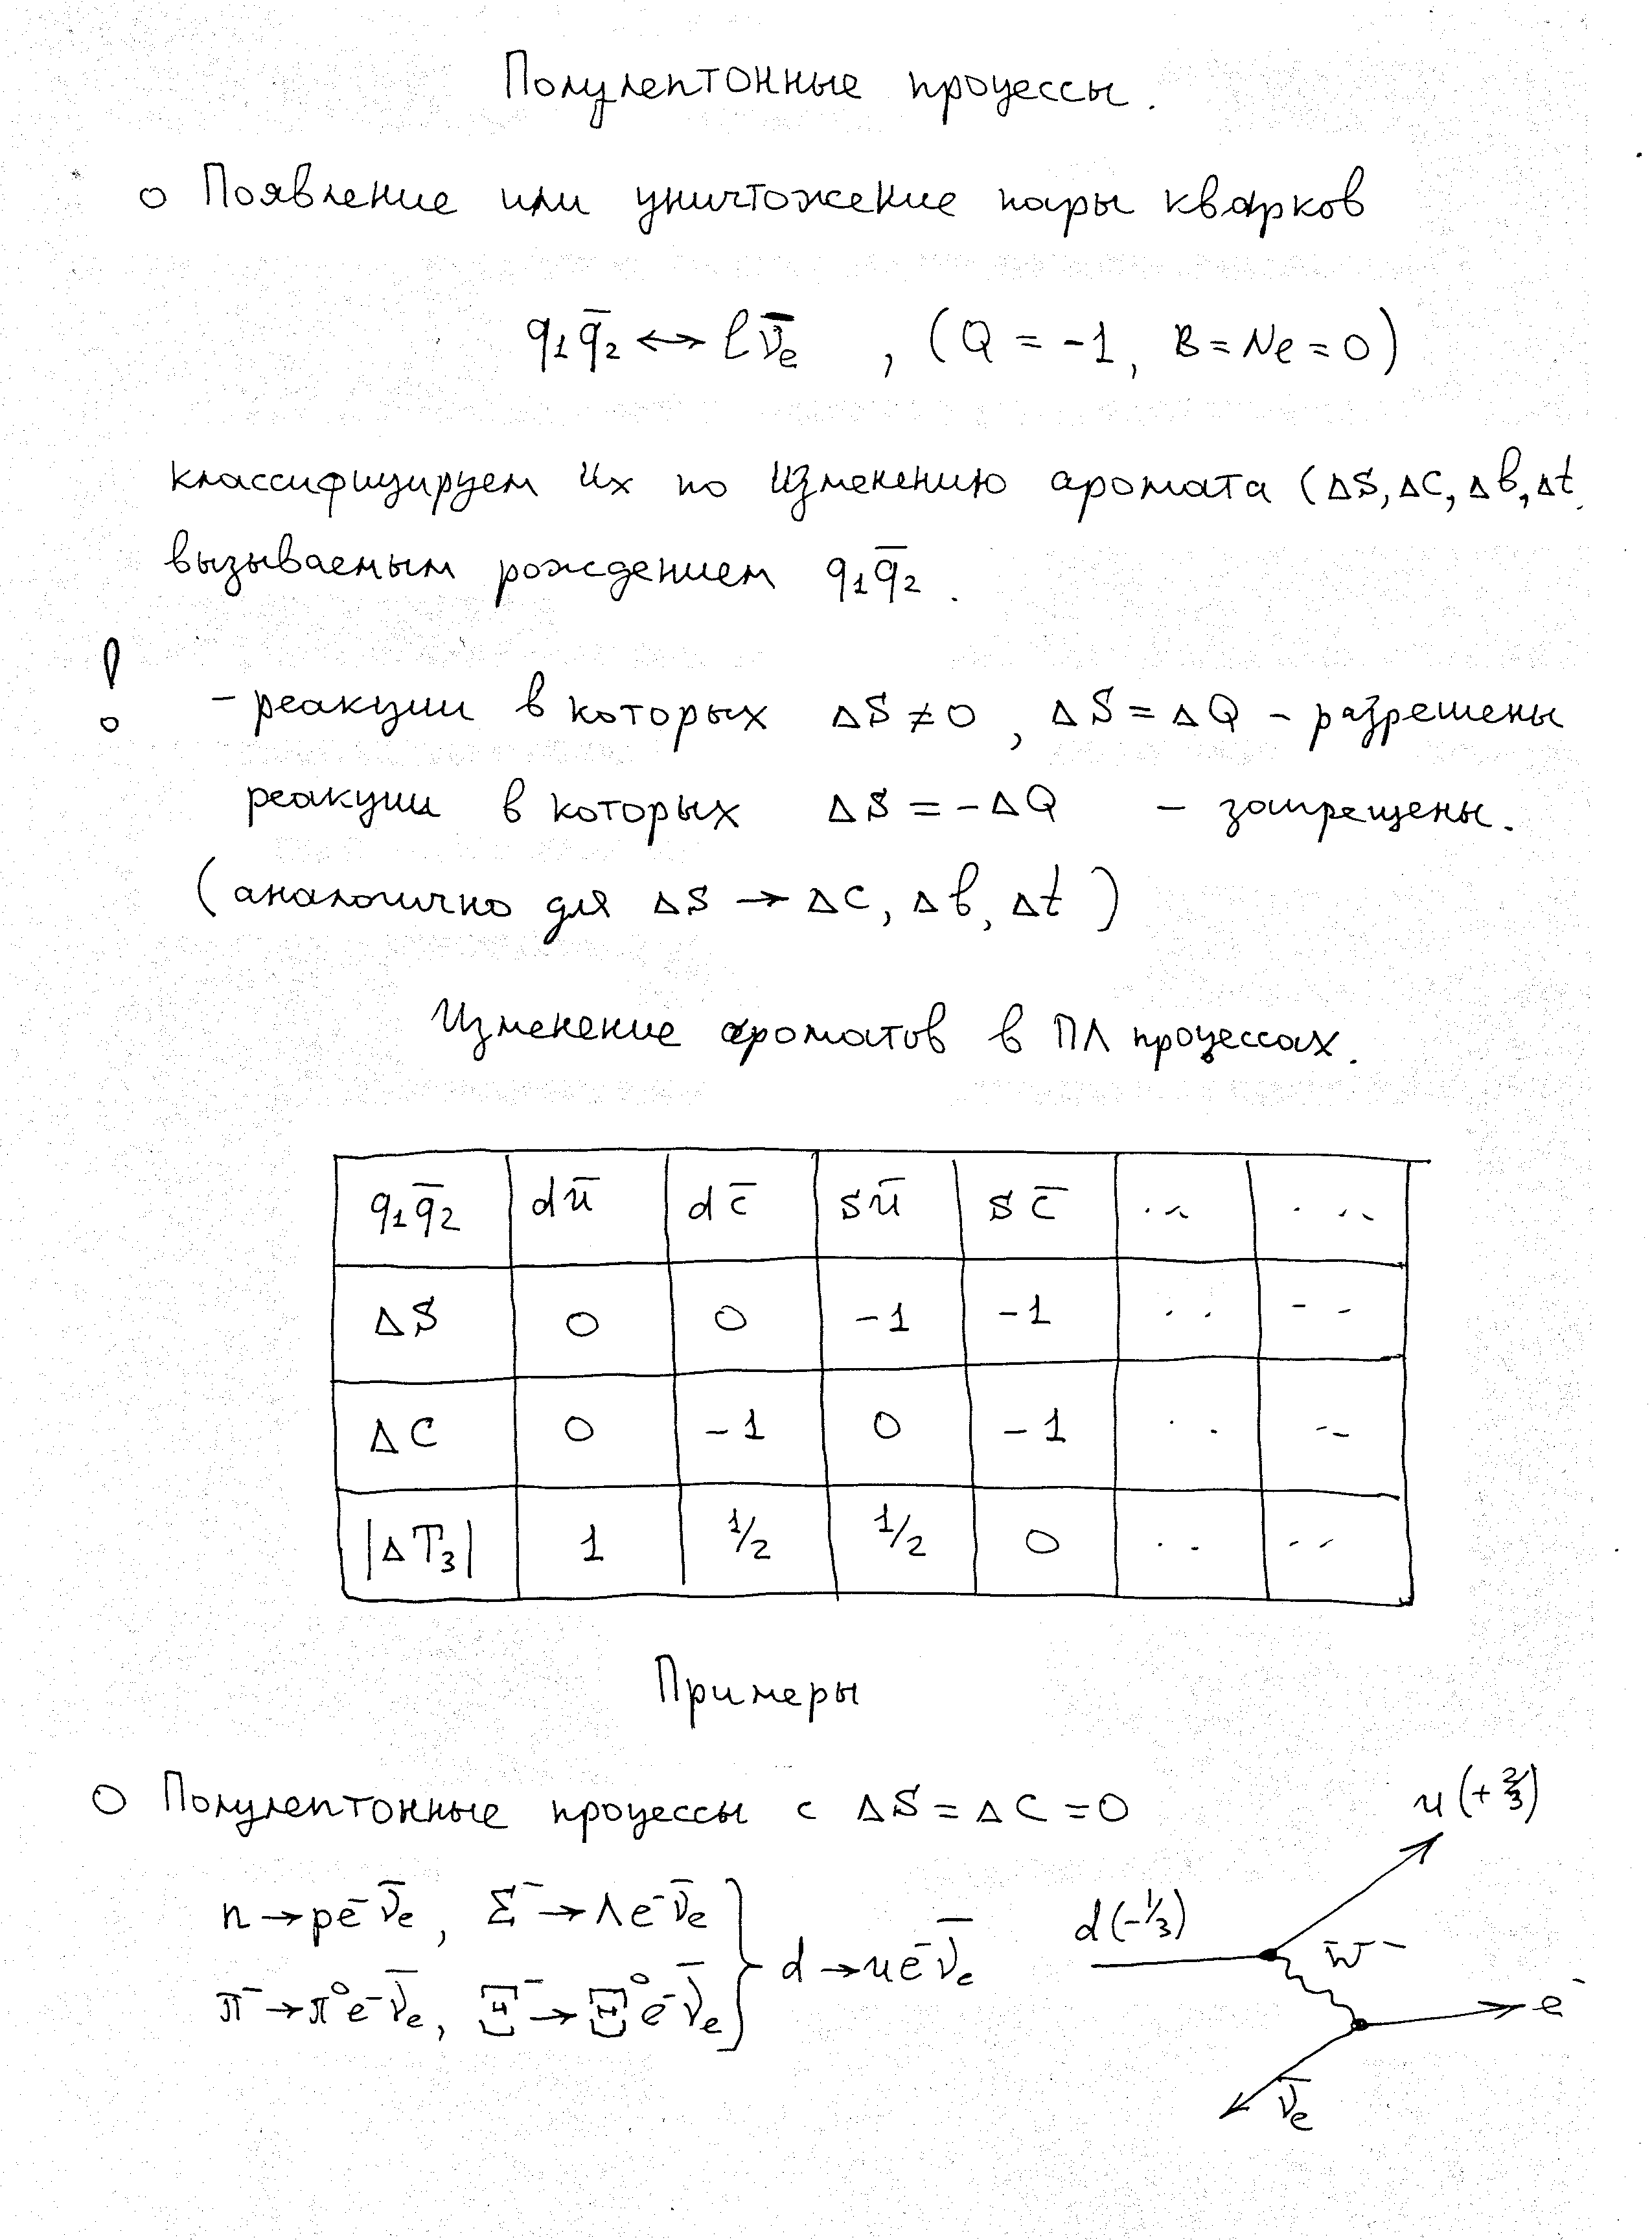 Полулептонные процессы.
o Появление или уничтожение пары кварков
q₁q̅₂ ↔ l ν̅ₑ , (Q = -1, B = Nₑ = 0)
классифицируем их по изменению аромата (ΔS, ΔC, Δb, Δt
вызываемым рождением q₁q̅₂.
! - реакции в которых ΔS ≠ 0, ΔS = ΔQ - разрешены
реакции в которых ΔS = -ΔQ - запрещены.
(аналогично для ΔS → ΔC, Δb, Δt)
Изменение ароматов в ПЛ процессах.
q₁q̅₂ du̅ dc̅ su̅ sc̅ ... ...
ΔS 0 0 -1 -1 .. --
ΔC 0 -1 0 -1 .. --
|ΔT₃| 1 1/2 1/2 0 .. --
Примеры
o Полулептонные процессы с ΔS = ΔC = 0
n → pe⁻ν̅ₑ, Σ⁻ → Λe⁻ν̅ₑ
π⁻ → π⁰e⁻ν̅ₑ, Ξ⁻ → Ξ⁰e⁻ν̅ₑ
} d → ue⁻ν̅ₑ
u (+2/3)
d (-1/3)
W⁻
e⁻
ν̅ₑ